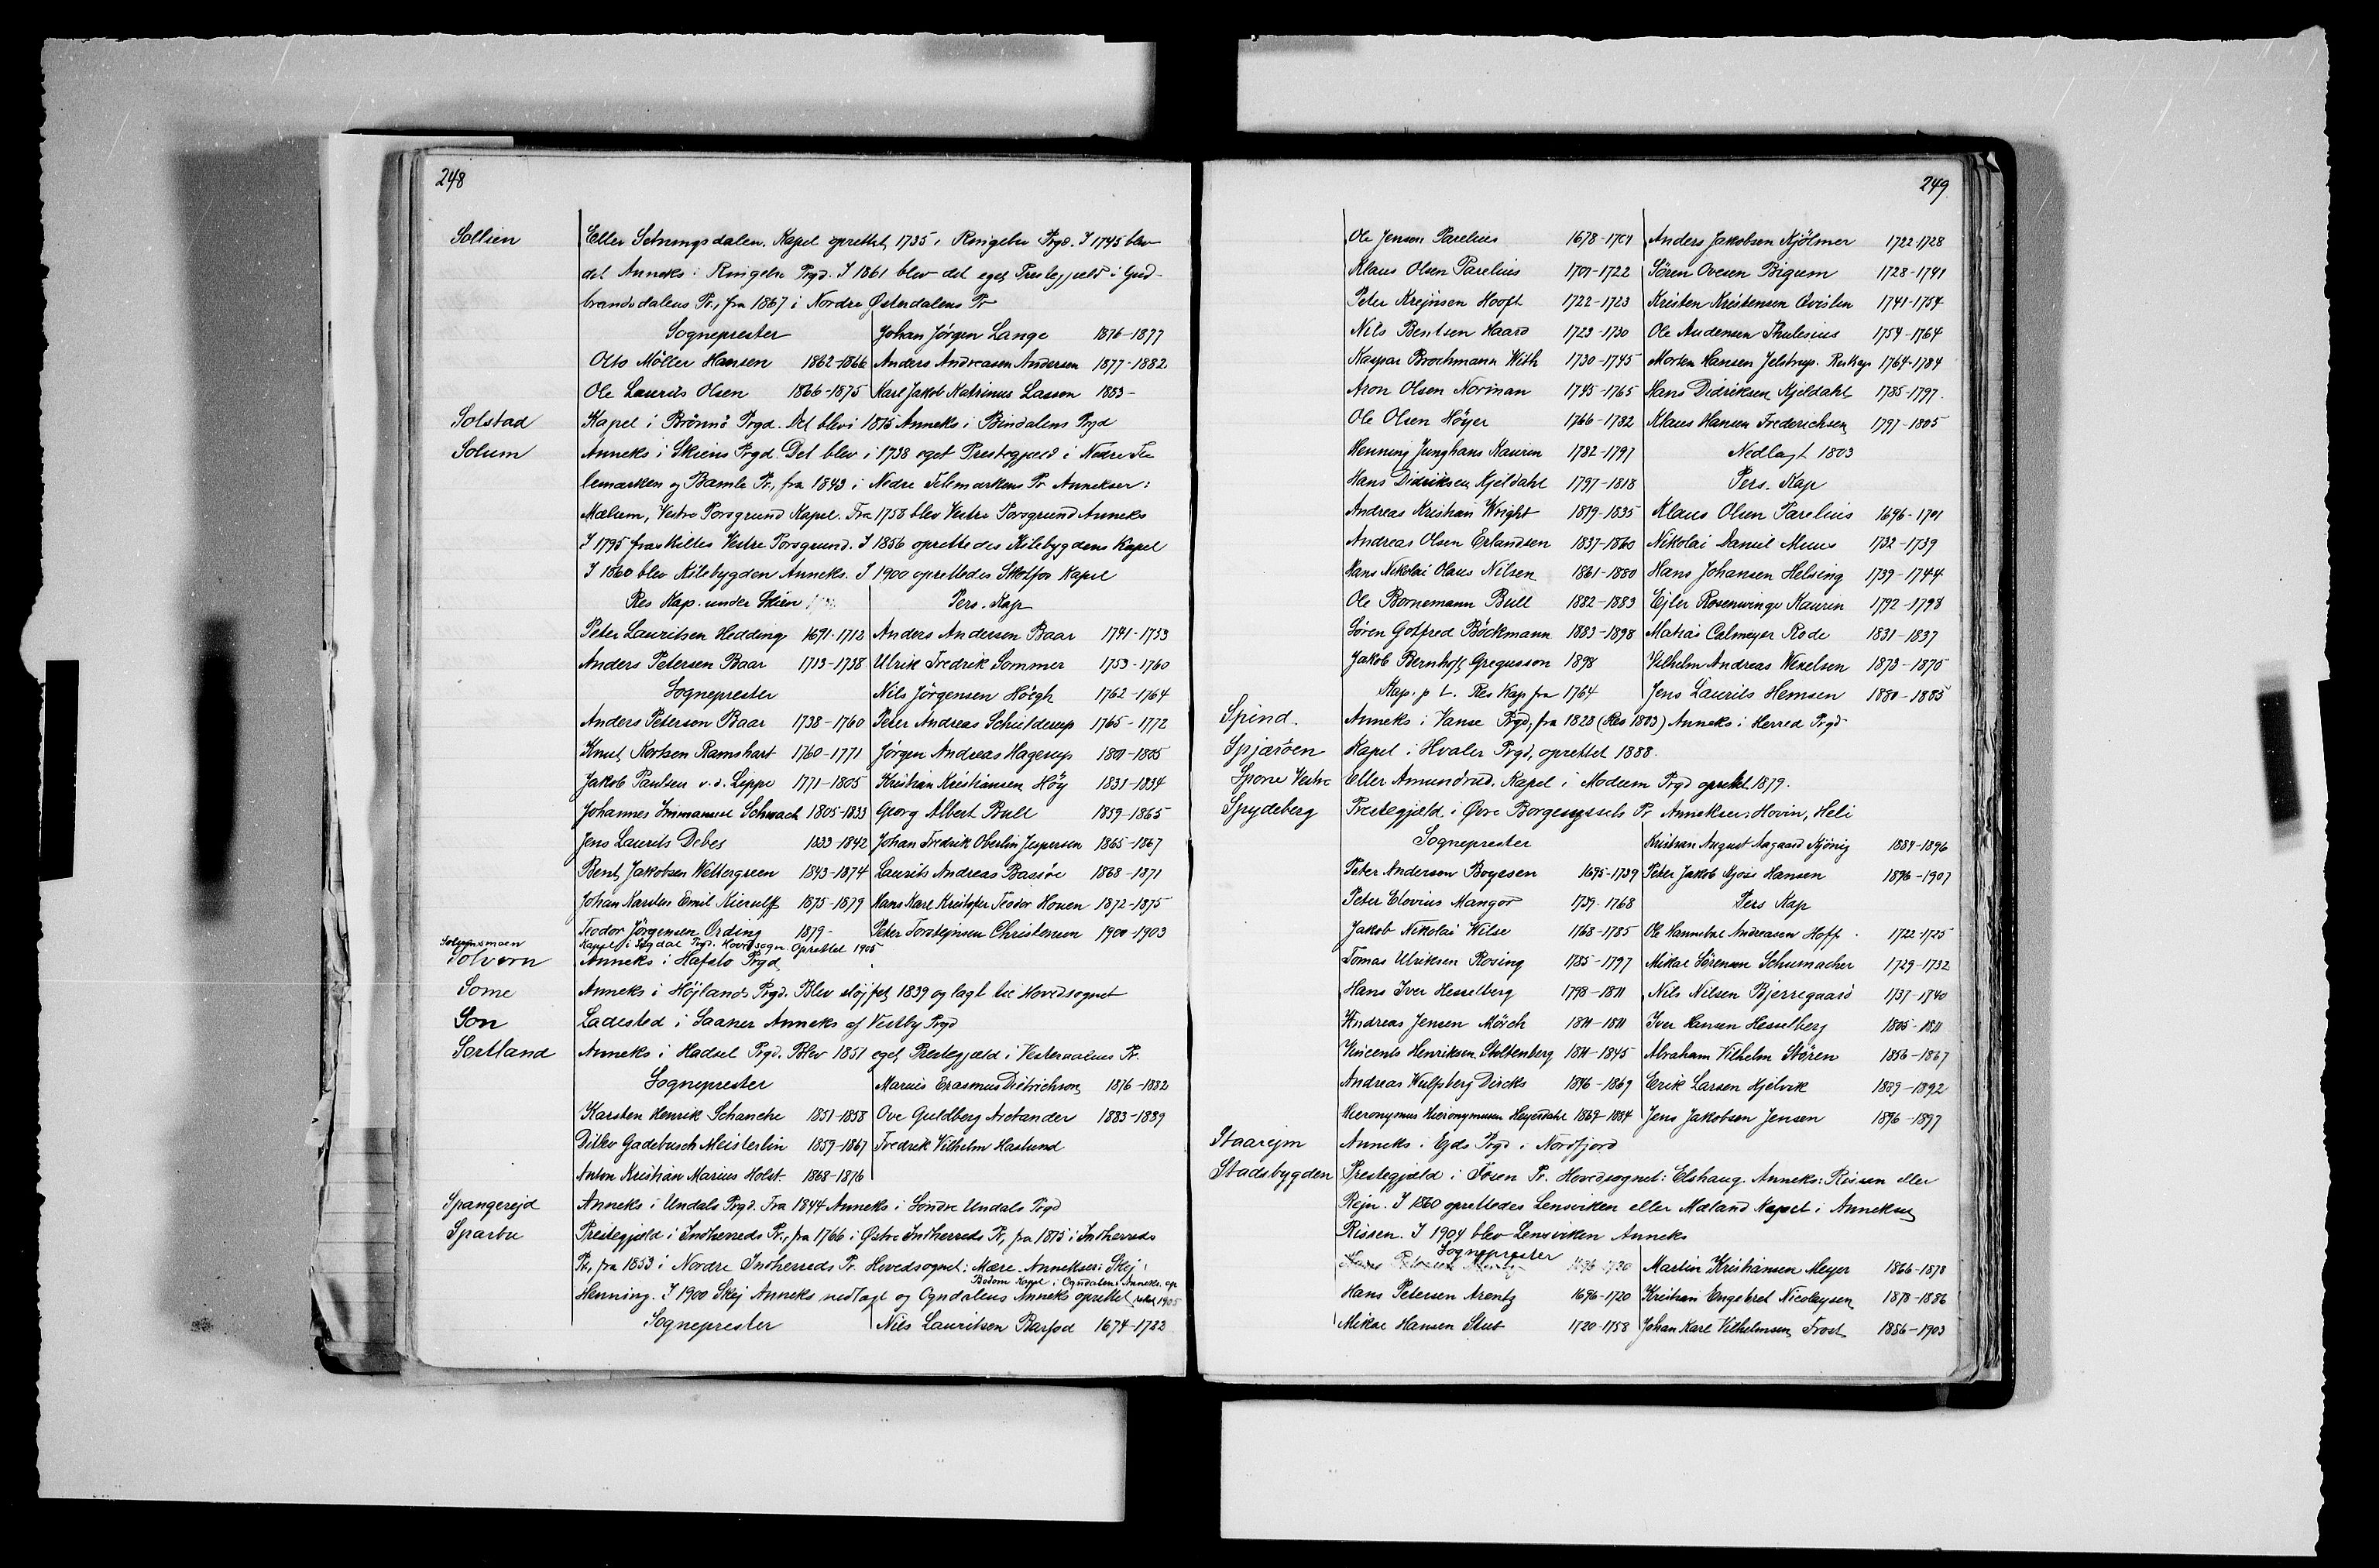 248
Sollien Eller Setningsdalen. Kapel oprettet 1735 i Ringebu Prgd. I 1745 blev
det Anneks i Ringebu Prgd. I 1861 blev det eget Prestegjæld i Gud-
brandsdalens Pr., fra 1867 i Nordre Østerdalens Pr
Sogneprester Johan Jörgen Lange 1876-1877
Otto Möller Hansen 1862-1866 Anders Andreasen Andersen 1877-1882
Ole Laurits Olsen 1866-1875 Karl Jakob Katrinus Lassen 1883-
Solstad Kapel i Brönnö Prgd. Det blev i 1875 Anneks i Bindalens Prgd
Solum Anneks i Skiens Prgd. Det blev i 1738 eget Prestegjæld i Nedre Te
lemarken og Bamle Pr., fra 1843 i Nedre Telemarkens Pr Annekser:
Mælum, Vestre Porsgrund Kapel. Fra 1758 blev Vestre Porsgrund Anneks
I 1795 fraskiltes Vestre Porsgrund. I 1856 oprettedes Kilebygdens Kapel
I 1860 blev Kilebygden Anneks. I 1900 oprettedes Skotfos Kapel
Res Kap. under Skien Pers. Kap
Peter Lauritsen Hedding 1691-1712 Anders Andersen Baar 1741-1753
Anders Petersen Baar 1713-1738 Ulrik Fredrik Sommer 1753-1760
Sogneprester Nils Jörgensen Höegh 1762-1764
Anders Petersen Baar 1738-1760 Peter Andreas Schilderup 1765-1772
Knut Kortsen Ramshart 1760-1771 Jörgen Andreas Hagerup 1801-1805
Jakob Paulsen v.d. Lippe 1771-1805 Kristian Kristiansen Höy 1831-1834
Johannes Immanuel Schwach 1805-1833 Georg Albert Bull 1859-1865
Jens Laurits Debes 1833-1842 Johan Fredrik Oberlin Jespersen 1865-1867
Bent Jakobsen Wettergreen 1843-1874 Laurits Andreas Bassöe 1868-1871
Johan Karsten Emil Kierulff 1875-1879 Hans Karl Kristofer Teodor Houen 1872-1875
Teodor Jörgensen Ording 1879- Peter Torstejnsen Christensen 1900-1903
Kapel i Sigdal Prgd. Hovedsogn. Oprettet 1905
Solvorn Anneks i Hafslo Prgd
Some Anneks i Höjlands Prgd. Blev slöjfet 1839 og lagt til Hovedsognet
Son Ladested i Saaner Anneks af Vestby Prgd
Sortland Anneks i Hadsel Prgd. Blev 1851 eget Prestegjæld i Vesteraalens Pr.
Sogneprester Marius Erasmus Dietrichson 1876-1882
Karsten Henrik Schanche 1851-1858 Ove Guldberg Arctander 1883-1889
Ditlev Gadebusch Meisterlin 1859-1867 Fredrik Vilhelm Haslund
Anton Kristian Marius Holst 1868-1876
Spangerejd Anneks i Undals Prgd. Fra 1844 Anneks i Söndre Undals Prgd
Sparbu Prestegjæld i Indherreds Pr., fra 1766 i Østre Indherreds Pr, fra 1815 i Indherreds
Pr., fra 1853 i Nordre Indherreds Pr. Hovedsognet: Mære. Annekser: Skej
Bodom Kapel i Ogndalens Anneks. op
Henning. I 1900 Skej Anneks nedlagt og Ogndalens Anneks oprettet rettet 1905
Sogneprester Nils Lauritsen Barfod 1674-1722
249
Ole Jensen Parelius 1678-1701 Anders Jakobsen Kjölmer 1722-1728
Klaus Olsen Parelius 1701-1722 Sören Ovesen Bigum 1728-1741
Peter Krejnsen Hooft 1722-1723 Kristen Kristensen Qvislin 1741-1754
Nils Bentsen Haard 1723-1730 Ole Andersen Thulesius 1754-1764
Kaspar Brochmann With 1730-1745 Morten Hansen Jelstrup. Reskap 1764-1784
Aron Olsen Norman 1745-1765 Hans Didriksen Kjeldahl 1785-1797
Ole Olsen Höyer 1766-1782 Klaus Hansen Frederichsen 1797-1805
Henning Junghans Kaurin 1782-1797 Nedlagt 1803
Hans Didriksen Kjeldahl 1797-1818 Pers. Kap
Andreas Kristian Wright 1819-1835 Klaus Olsen Parelius 1696-1701
Andreas Olsen Erlandsen 1837-1860 Nikolai Daniel Muus 1732-1739
Hans Nikolai Olaus Nilsen 1861-1880 Hans Johansen Helsing 1739-1744
Ole Bornemann Bull 1882-1883 Ejler Rosenvinge Kaurin 1792-1798
Sören Gotfred Böckmann 1883-1898 Matias Calmeyer Rode 1831-1837
Jakob Bernhoft Gregusson 1898 Vilhelm Andreas Wexelsen 1873-1875
Kap. p t. Res Kap fra 1764 Jens Laurits Hemsen 1880-1885
Spind. Anneks i Vanse Prgd, fra 1828 (Res 1803) Anneks i Herred Prgd
Spjæröen Kapel i Hvaler Prgd, oprettet 1888.
Spone Vestre Eller Amundrud. Kapel i Modum Prgd oprettet 1879.
Spydeberg Prestegjæld i Øvre Borgesyssels Pr Annekser: Hovin, Heli
Sogneprester Kristian August Aagaard Kjönig 1884-1896
Peter Andersen Boyesen 1695-1739 Peter Jakob Mjöus Hansen 1896-1907
Peter Elovius Mangor 1739-1768 Pers Kap
Jakob Nikolai Wilse 1768-1785 Ole Hannibal Andreasen Hoff 1722-1725
Tomas Ulriksen Rosing 1785-1797 Mikael Sörensen Schumacher 1729-1732
Hans Iver Hesselberg 1798-1811 Nils Nilsen Bjerregaard 1737-1740
Andreas Jensen Mörch 1811-1811 Iver Hansen Hesselberg 1805-1811
Vincents Henriksen Stoltenberg 1811-1845 Abraham Vilhelm Stören 1856-1867
Andreas Wulfsberg Dircks 1846-1869 Erik Larsen Hjelvik 1889-1892
Hieronymus Hieronymussen Heyerdahl 1869-1884 Jens Jakobsen Jensen 1896-1897
Staarejm Anneks i Ejds Prgd i Nordfjord
Stadsbygden Prestegjæld i Fosen Pr. Hovedsognet: Elshaug. Anneks: Rissen eller
Rejn. I 1860 oprettedes Lensviken eller Mæland Kapel i Annekset
Rissen. I 1904 blev Lensviken Anneks
Sogneprester Martin Kristiansen Meyer 1866-1878
Hans Petersen Arentz 1696-1720 Kristian Engebret Nicolaysen 1878-1886
Mikael Hansen Stub 1720-1758 Johan Karl Vilhelmsen Frost 1886-1903